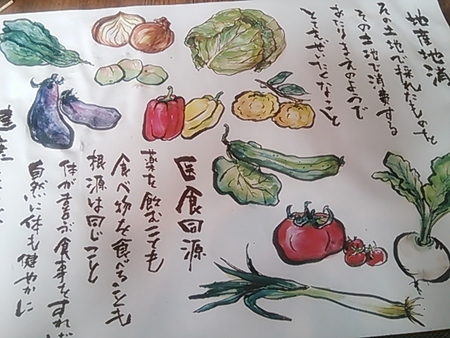 地産地消
その土地で採れたものを
その土地で消費する
あたりまえのようで
とてもぜいたくなこと
医食同源
薬を飲むことも
食べ物を食べることも
根源は同じこと
体が喜ぶ食事をすれば
自然に体も健やかに